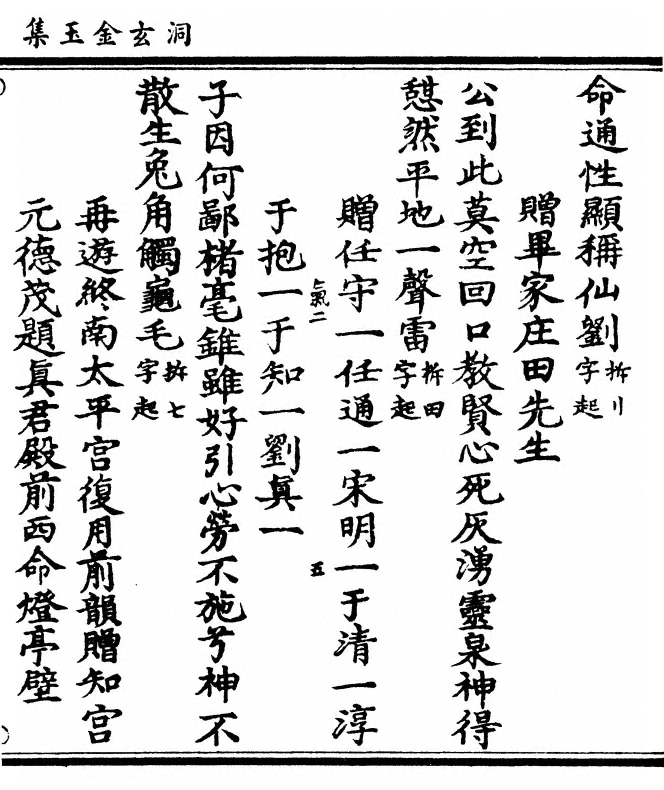 洞玄金玉集
命通性顯稱仙劉拆刂字起
贈畢家庄田先生
公到此莫空回口教賢心死灰湧靈泉神得
憇然平地一聲雷拆田字起
贈任守一任通一宋明一于清一淳
于抱一于知一劉真一
氣二
五
子因何鄙楮毫錐雖好引心勞不施兮神不
散生兔角觸龜毛拆七字起
再遊終南太平宫復用前韻贈知宫
元德茂題真君殿前西命燈亭壁